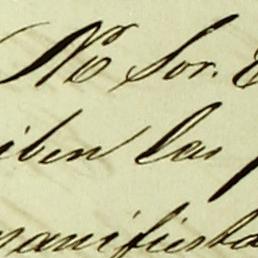 Nro Sor. E
iben las p
manifiesta